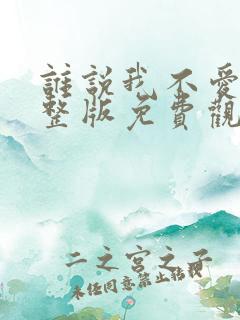 誰說我不愛
整版免費觀
二之宮之子
未任同意禁止轉載